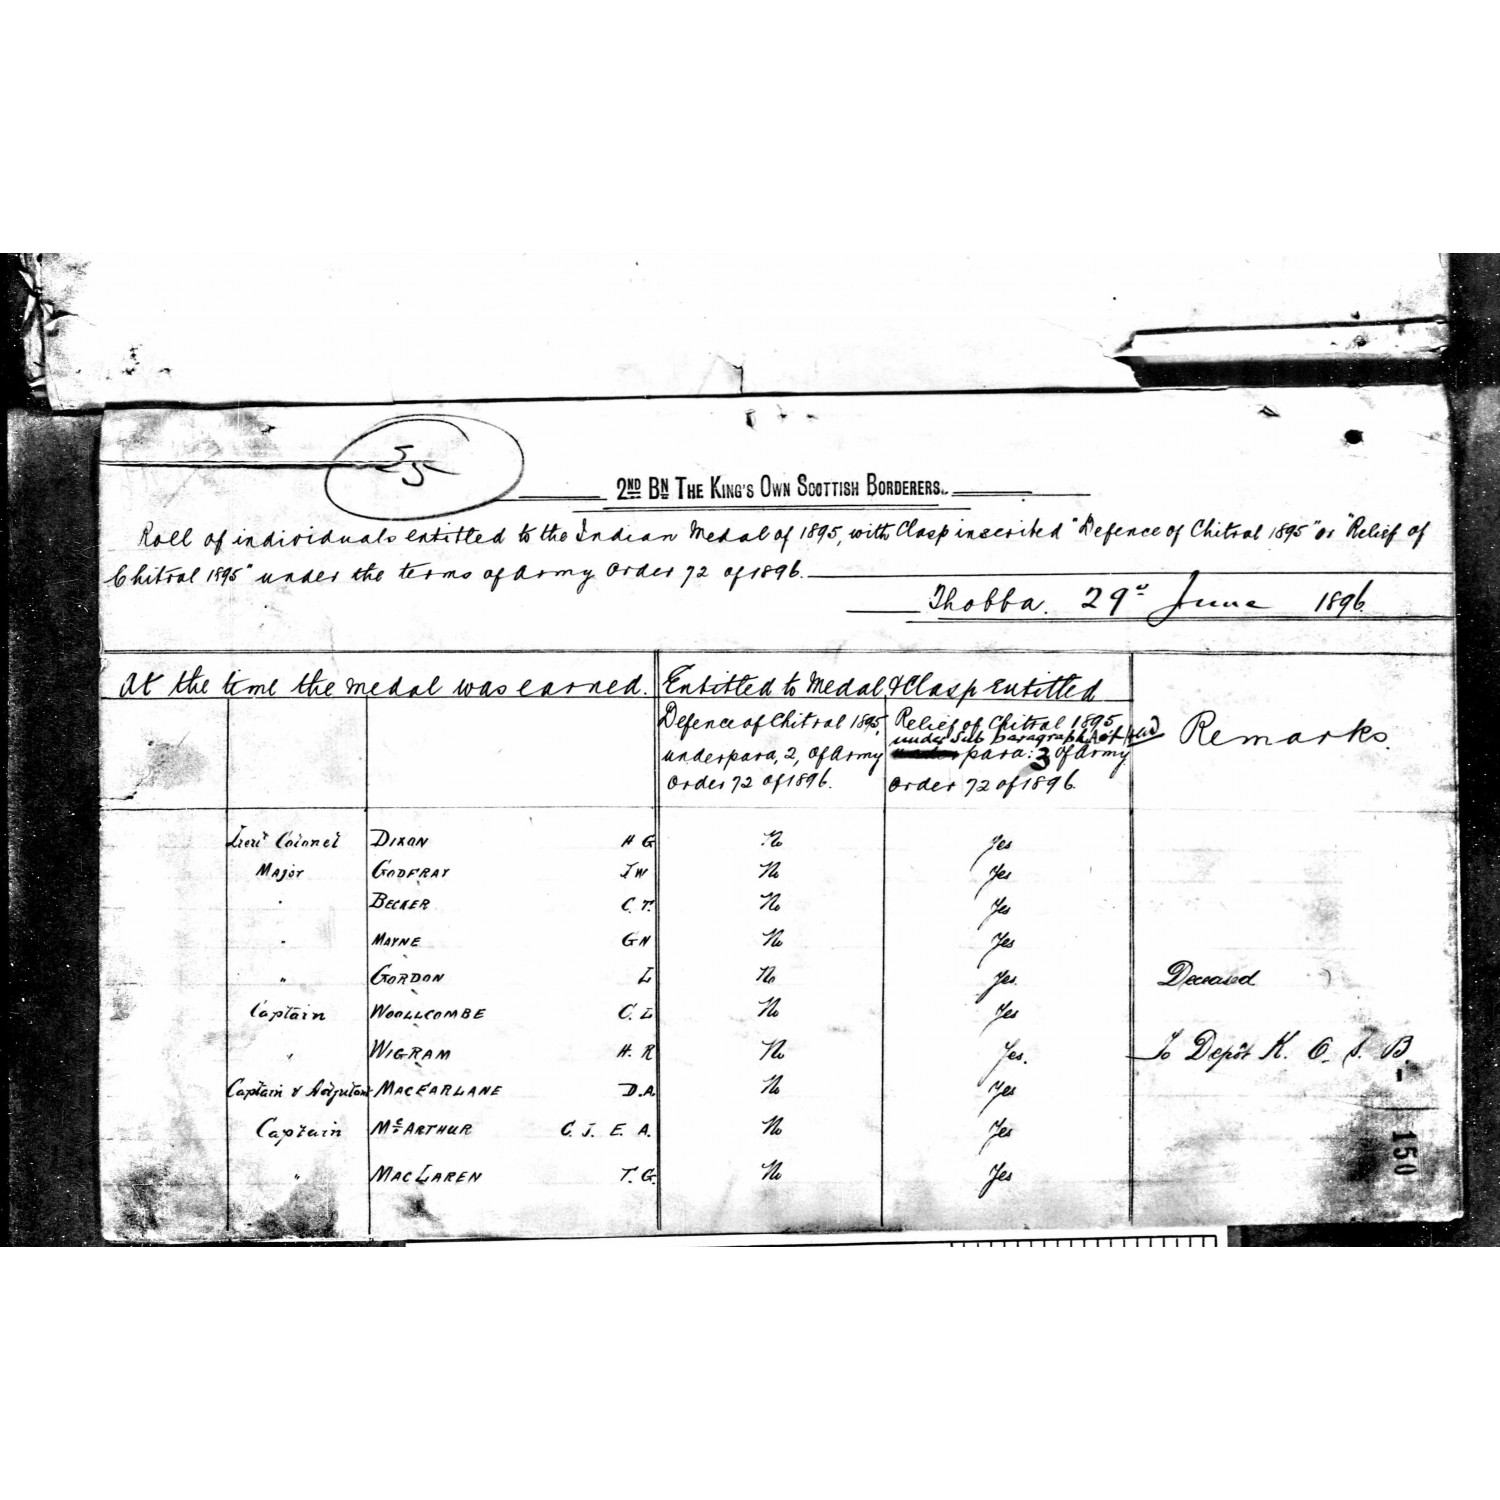 55
2ND BN THE KING'S OWN SCOTTISH BORDERERS.
Roll of individuals entitled to the Indian Medal of 1895, with Clasp inscribed "Defence of Chitral 1895" or "Relief of
Chitral 1895" under the terms of Army Order 72 of 1896.
Thobba. 29th June 1896.
At the time the medal was earned. Entitled to Medal & Clasp Entitled
Remarks.
Defence of Chitral 1895, under para, 2, of Army Order 72 of 1896.
Relief of Chitral 1895 under Sub paragraph of para: 3 of Army Order 72 of 1896.
Lieut Colonel DIXON H G No Yes
Major GODFRAY J W No Yes
" BECKER C. T. No Yes
" MAYNE G N No Yes
" GORDON L No Yes. Deceased
Captain WOOLLCOMBE C. L No Yes
" WIGRAM H. R No Yes. To Depôt K. O. S. B.
Captain & Adjutant MACFARLANE D.A. No Yes
Captain McARTHUR C. J. E. A. No Yes
" MACLAREN T. G. No Yes
150